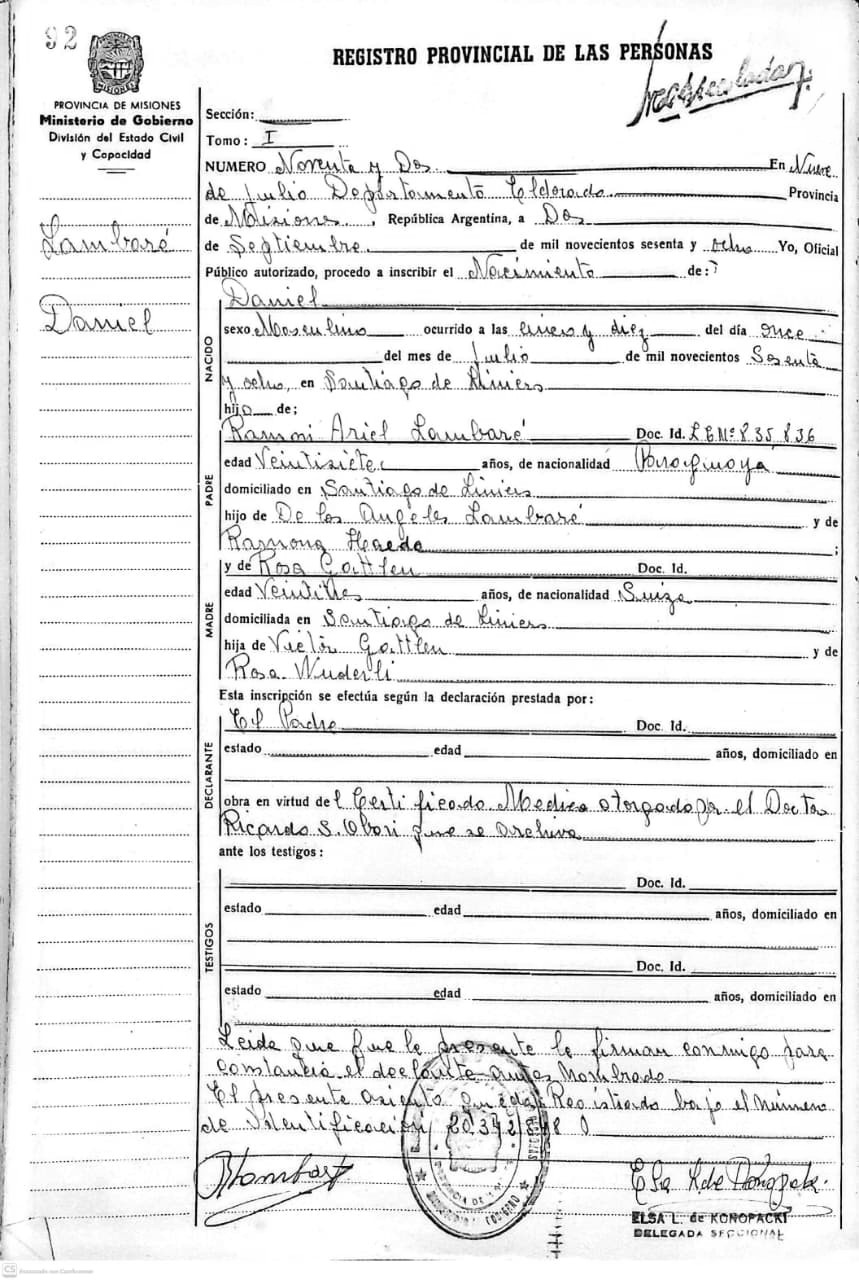 92
REGISTRO PROVINCIAL DE LAS PERSONAS
PROVINCIA DE MISIONES
Ministerio de Gobierno
División del Estado Civil
y Capacidad
Lambaré
Daniel
Sección:
Tomo: I
NUMERO Noventa y Dos En Nueve
de Julio Departamento Eldorado Provincia
de Misiones, República Argentina, a Dos
de Septiembre de mil novecientos sesenta y ocho Yo, Oficial
Público autorizado, procedo a inscribir el Nacimiento de:
NACIDO
Daniel
sexo Masculino ocurrido a las y diez del día once
del mes de Julio de mil novecientos Sesenta
y ocho, en Santiago de Liniers
hijo de;
PADRE
Ramón Ariel Lambaré Doc. Id. L E Nº 835 836
edad Veintisiete años, de nacionalidad Paraguaya
domiciliado en Santiago de Liniers
hijo de De los Angeles Lambaré y de
Ramona Haedo ;
MADRE
y de Rosa Gattlen Doc. Id.
edad Veintitres años, de nacionalidad Suiza
domiciliada en Santiago de Liniers
hija de Victor Gattlen y de
Rosa Wuderli
Esta inscripción se efectúa según la declaración prestada por:
DECLARANTE
El Padre Doc. Id.
estado edad años, domiciliado en
obra en virtud del Certificado Medico otorgado por el Doctor
Ricardo S. que se archiva
ante los testigos:
TESTIGOS
Doc. Id.
estado edad años, domiciliado en
Doc. Id.
estado edad años, domiciliado en
Leida que fue la presente la firman conmigo para
constancia el antes nombrado
El presente asiento queda Registrado bajo el número
de Identificación
Elsa L de Konopacki
ELSA L. de KONOPACKI
DELEGADA SECCIONAL
CS Escaneado con CamScanner